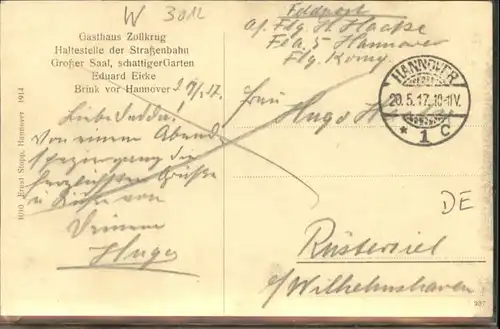 W 3012
Gasthaus Zollkrug
Haltestelle der Straßenbahn
Großer Saal, schattiger Garten
Eduard Eicke
Brink vor Hannover
Feldpost
Abs. Flg. H. Haake
Fea. 5 Hannover
Flg. Komp.
HANNOVER
20.5.17. 10-11V.
* 1 c
Frau Hugo
Liebe
Von einem Abend
spaziergang die
herzlichsten Grüße
u. Küsse von
Deinem
Hugo
DE
Rüstersiel
b/Wilhelmshaven
1010 Ernst Stopp, Hannover 1914